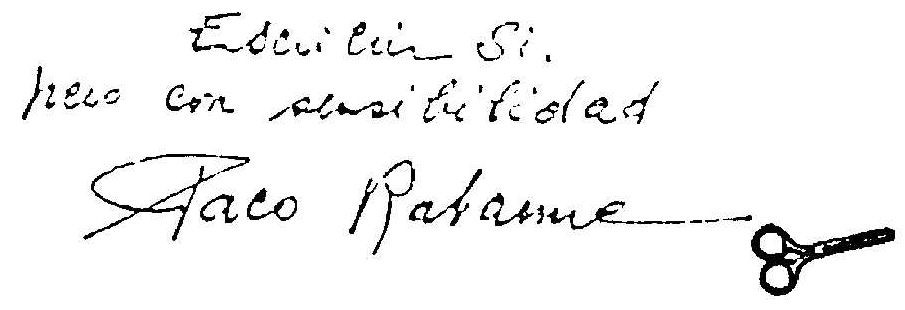 Escribir Si.
pero con sensibilidad
Paco Rabanne